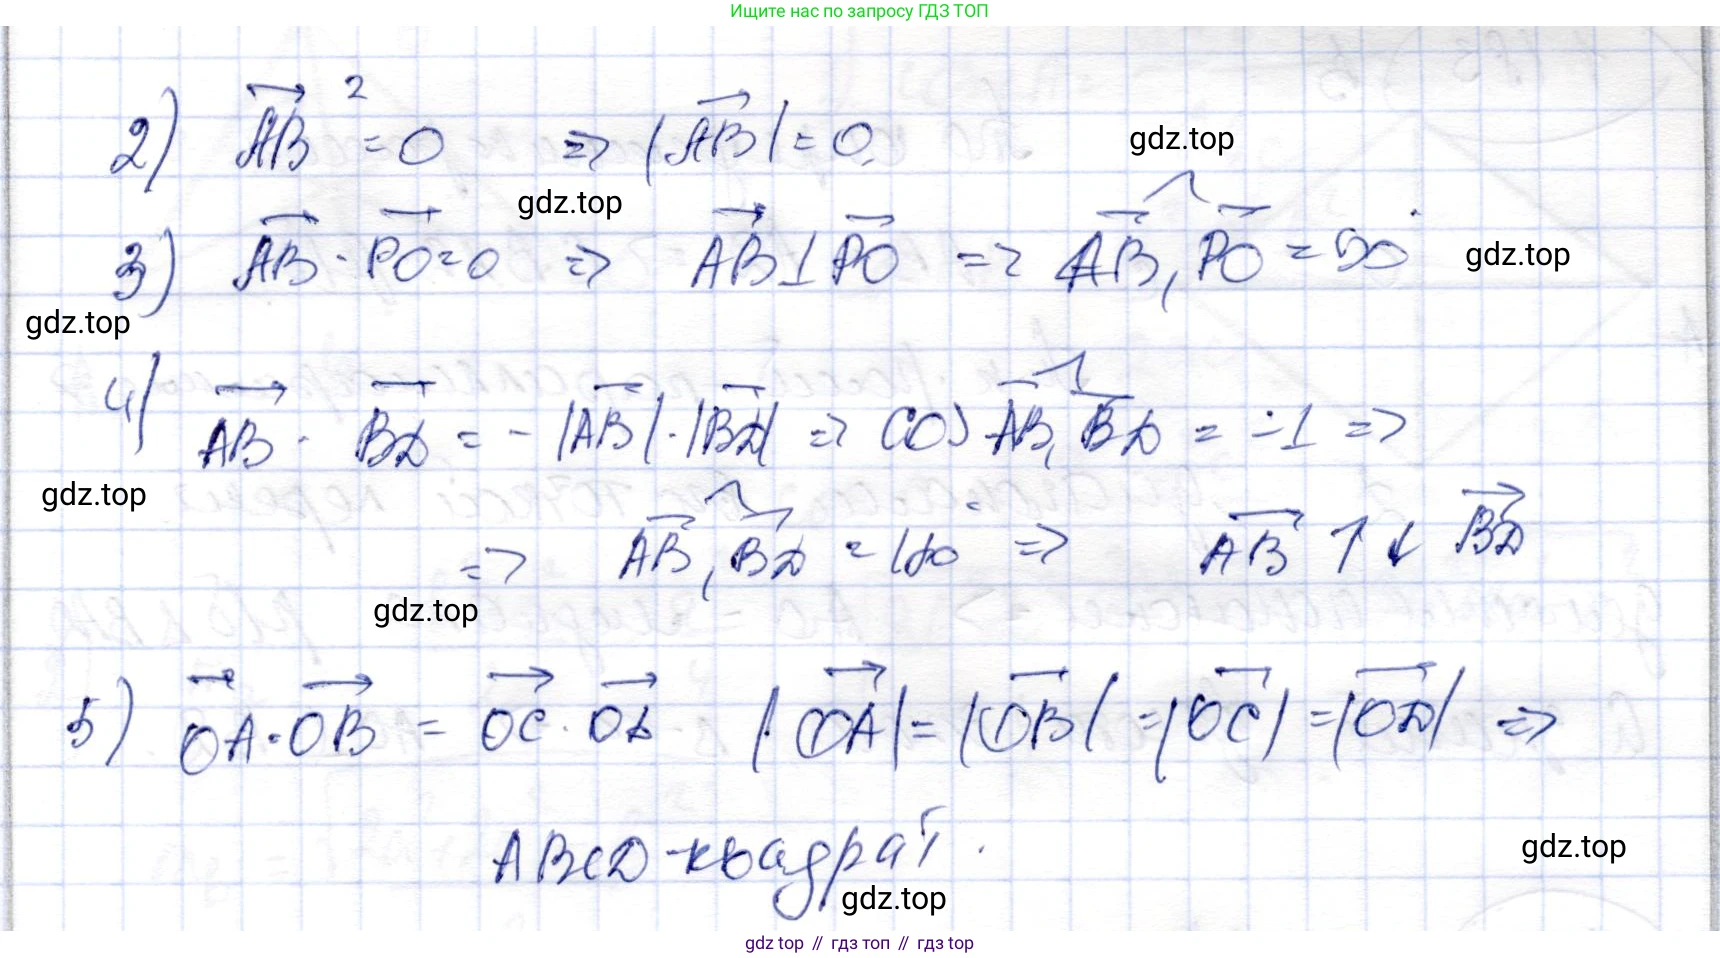 Ищите нас по запросу ГДЗ ТОП
2) AB² = 0 => |AB| = 0.
gdz.top
gdz.top
3) AB · PO = 0 => AB ⊥ PO => AB, PO = 90°
gdz.top
gdz.top
4) AB · BD = - |AB| · |BD| => cos AB, BD = -1 =>
gdz.top
=> AB, BD = 180° => AB ↑↓ BD
gdz.top
5) OA · OB = OC · OD |OA| = |OB| = |OC| = |OD| =>
ABCD - квадрат.
gdz.top
gdz.top
gdz top // гдз топ // гдз top